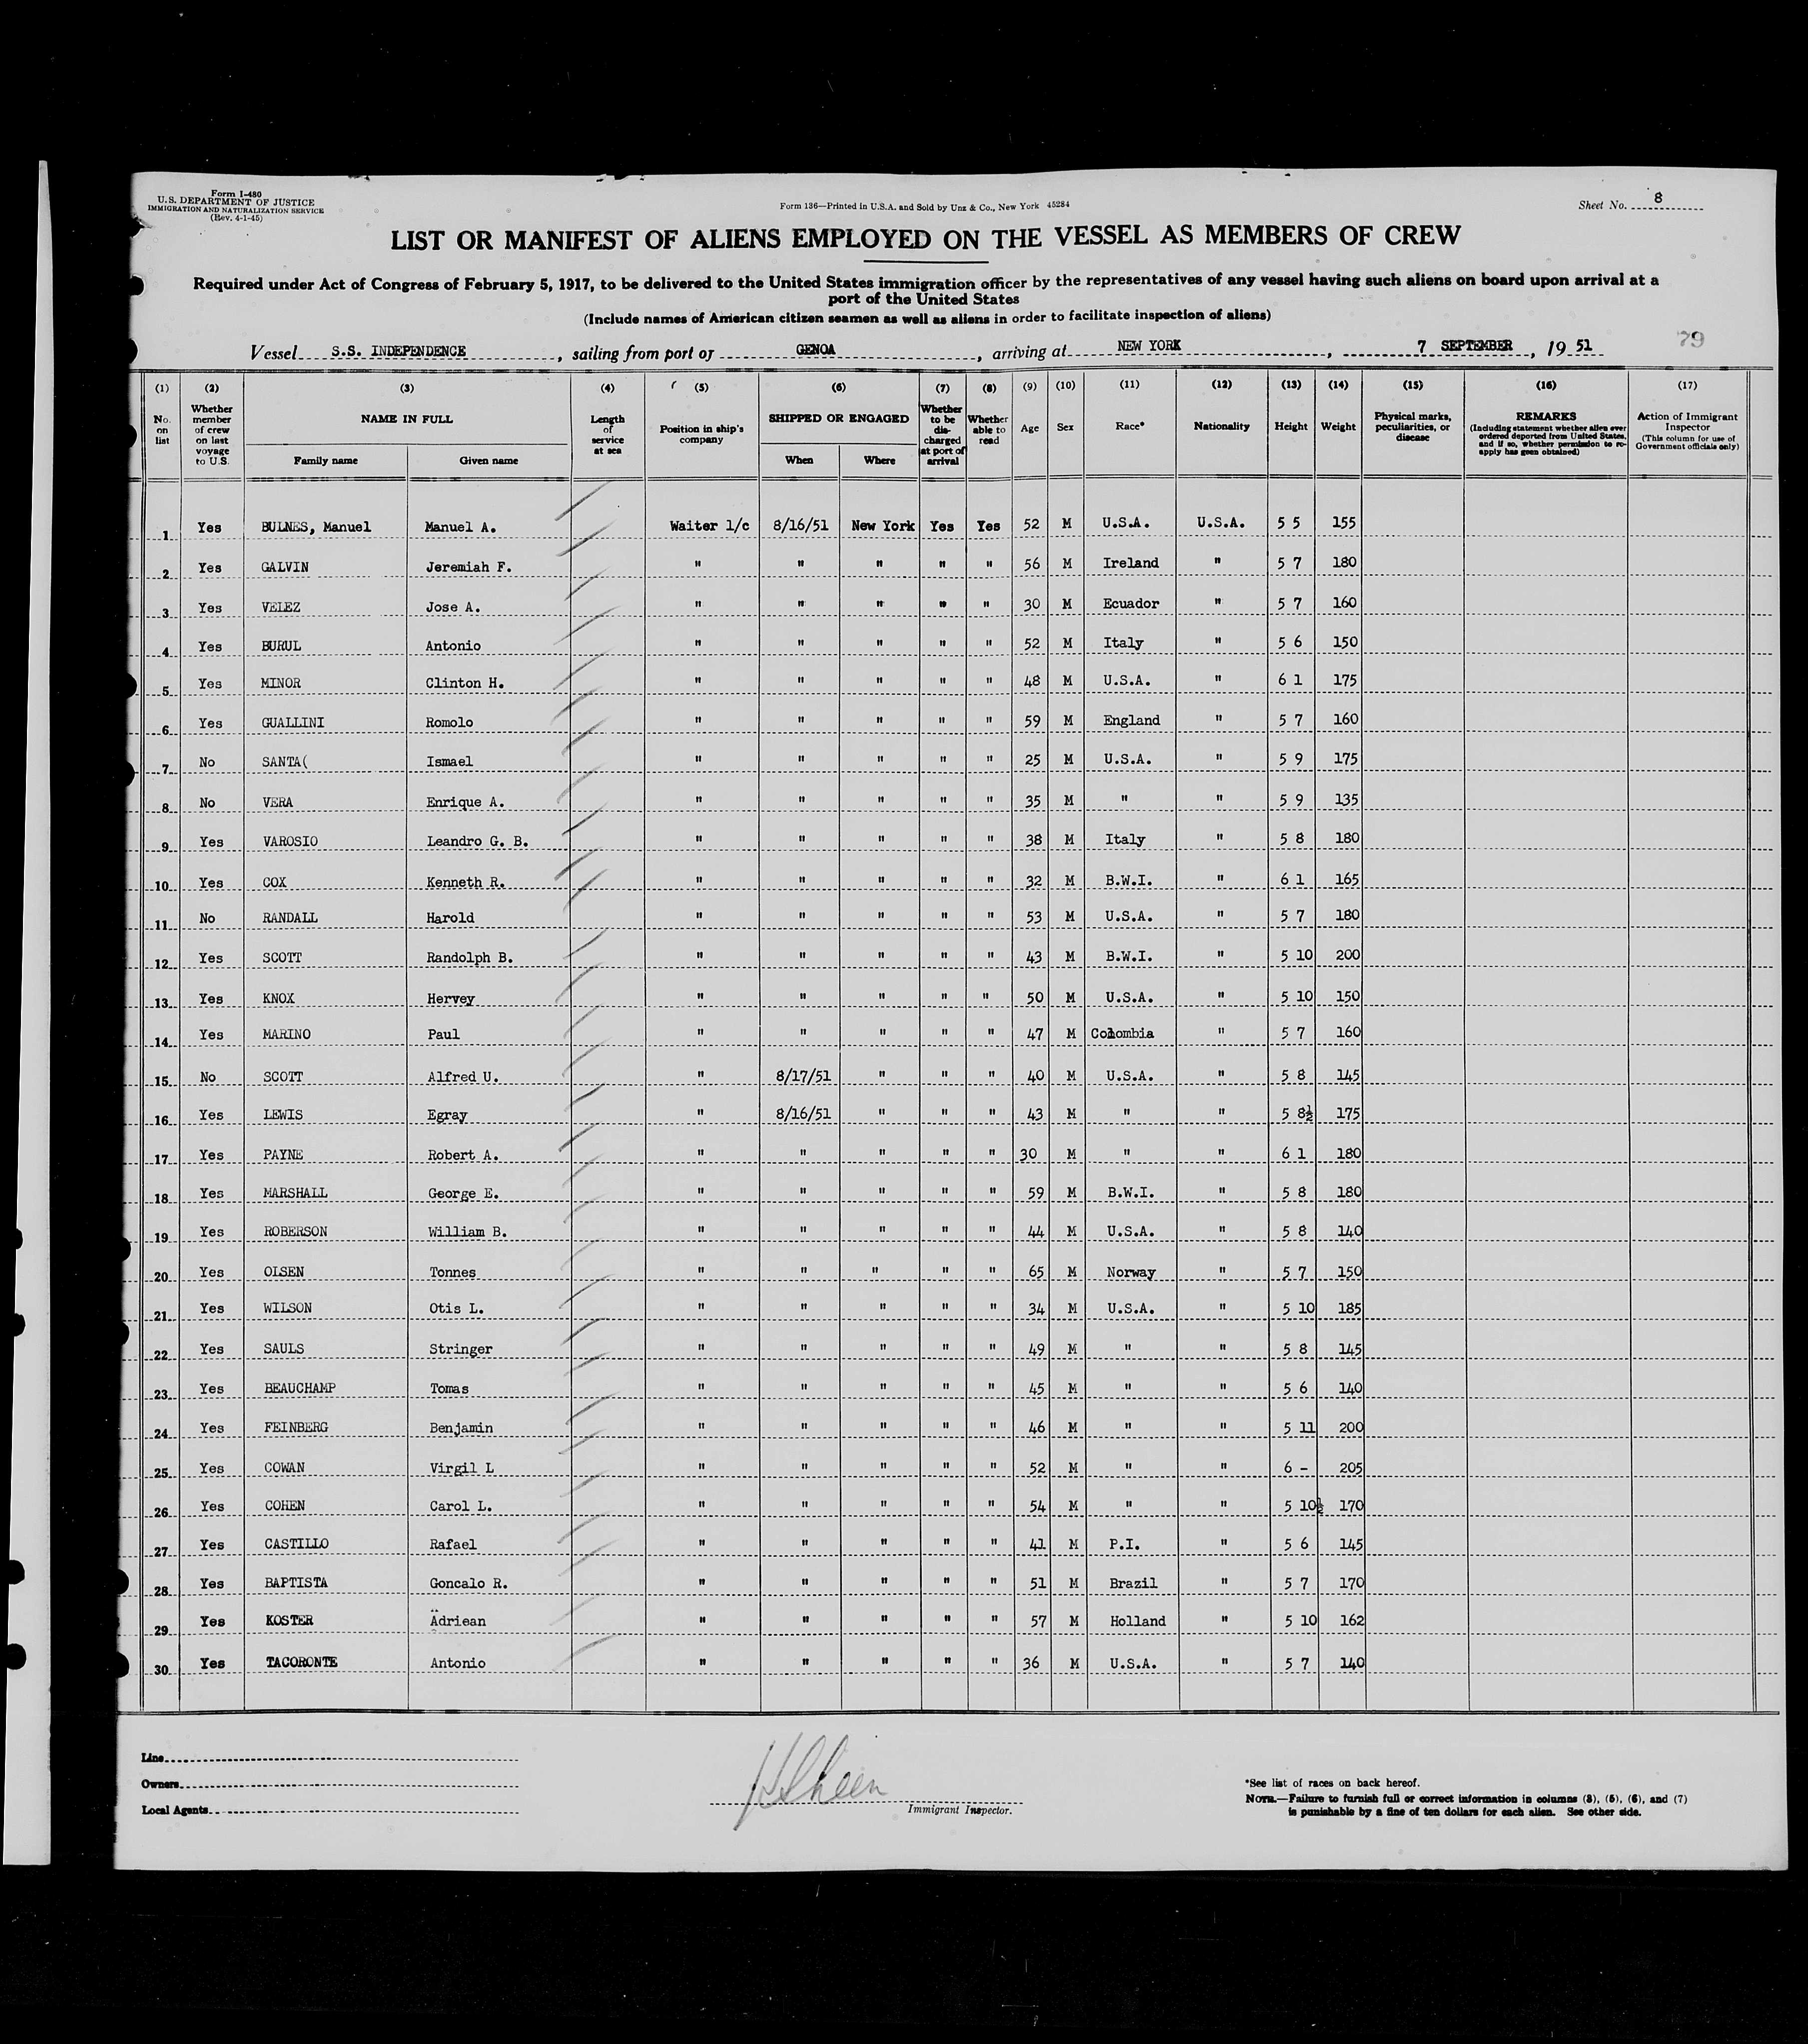 Form I-480
U.S. DEPARTMENT OF JUSTICE
IMMIGRATION AND NATURALIZATION SERVICE
(Rev. 4-1-45)
Form 136—Printed in U.S.A. and Sold by Unz & Co., New York 45284
Sheet No. 8
LIST OR MANIFEST OF ALIENS EMPLOYED ON THE VESSEL AS MEMBERS OF CREW
Required under Act of Congress of February 5, 1917, to be delivered to the United States immigration officer by the representatives of any vessel having such aliens on board upon arrival at a
port of the United States
(Include names of American citizen seamen as well as aliens in order to facilitate inspection of aliens)
79
Vessel S.S. INDEPENDENCE, sailing from port of GENOA, arriving at NEW YORK, 7 SEPTEMBER, 19 51
(1) (2) (3) (4) (5) (6) (7) (8) (9) (10) (11) (12) (13) (14) (15) (16) (17)
No. on list
Whether member of crew on last voyage to U.S.
NAME IN FULL
Family name
Given name
Length of service at sea
Position in ship's company
SHIPPED OR ENGAGED
When
Where
Whether to be discharged at port of arrival
Whether able to read
Age
Sex
Race*
Nationality
Height
Weight
Physical marks, peculiarities, or disease
REMARKS
(Including statement whether alien ever ordered deported from United States, and if so, whether permission to re-apply has geen obtained)
Action of Immigrant Inspector
(This column for use of Government officials only)
1 Yes BULNES, Manuel Manuel A. Waiter 1/c 8/16/51 New York Yes Yes 52 M U.S.A. U.S.A. 5 5 155
2 Yes GALVIN Jeremiah F. " " " " " 56 M Ireland " 5 7 180
3 Yes VELEZ Jose A. " " " " " 30 M Ecuador " 5 7 160
4 Yes BURUL Antonio " " " " " 52 M Italy " 5 6 150
5 Yes MINOR Clinton H. " " " " " 48 M U.S.A. " 6 1 175
6 Yes GUALLINI Romolo " " " " " 59 M England " 5 7 160
7 No SANTA( Ismael " " " " " 25 M U.S.A. " 5 9 175
8 No VERA Enrique A. " " " " " 35 M " " 5 9 135
9 Yes VAROSIO Leandro G. B. " " " " " 38 M Italy " 5 8 180
10 Yes COX Kenneth R. " " " " " 32 M B.W.I. " 6 1 165
11 No RANDALL Harold " " " " " 53 M U.S.A. " 5 7 180
12 Yes SCOTT Randolph B. " " " " " 43 M B.W.I. " 5 10 200
13 Yes KNOX Hervey " " " " " 50 M U.S.A. " 5 10 150
14 Yes MARINO Paul " " " " " 47 M Colombia " 5 7 160
15 No SCOTT Alfred U. " 8/17/51 " " " 40 M U.S.A. " 5 8 145
16 Yes LEWIS Egray " 8/16/51 " " " 43 M " " 5 8½ 175
17 Yes PAYNE Robert A. " " " " " 30 M " " 6 1 180
18 Yes MARSHALL George E. " " " " " 59 M B.W.I. " 5 8 180
19 Yes ROBERSON William B. " " " " " 44 M U.S.A. " 5 8 140
20 Yes OLSEN Tonnes " " " " " 65 M Norway " 5 7 150
21 Yes WILSON Otis L. " " " " " 34 M U.S.A. " 5 10 185
22 Yes SAULS Stringer " " " " " 49 M " " 5 8 145
23 Yes BEAUCHAMP Tomas " " " " " 45 M " " 5 6 140
24 Yes FEINBERG Benjamin " " " " " 46 M " " 5 11 200
25 Yes COWAN Virgil L " " " " " 52 M " " 6 - 205
26 Yes COHEN Carol L. " " " " " 54 M " " 5 10½ 170
27 Yes CASTILLO Rafael " " " " " 41 M P.I. " 5 6 145
28 Yes BAPTISTA Goncalo R. " " " " " 51 M Brazil " 5 7 170
29 Yes KOSTER Adriean " " " " " 57 M Holland " 5 10 162
30 Yes TACORONTE Antonio " " " " " 36 M U.S.A. " 5 7 140
Line
Owners
Local Agents
Immigrant Inspector.
*See list of races on back hereof.
NOTE.—Failure to furnish full or correct information in columns (3), (5), (6), and (7)
is punishable by a fine of ten dollars for each alien. See other side.